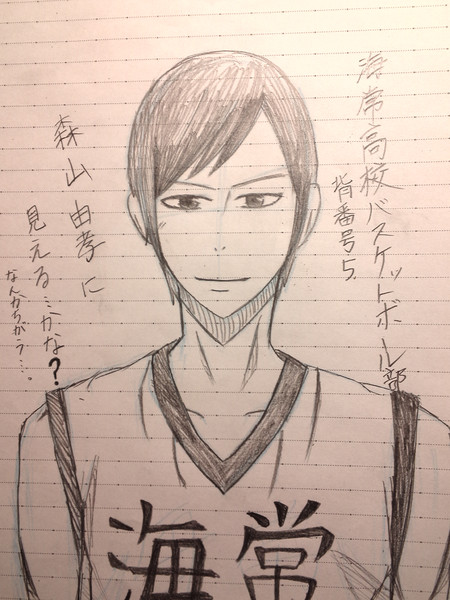 海常高校バスケットボール部
背番号5.
森山由孝に
見える…かな?
なんかちがう…。
海常